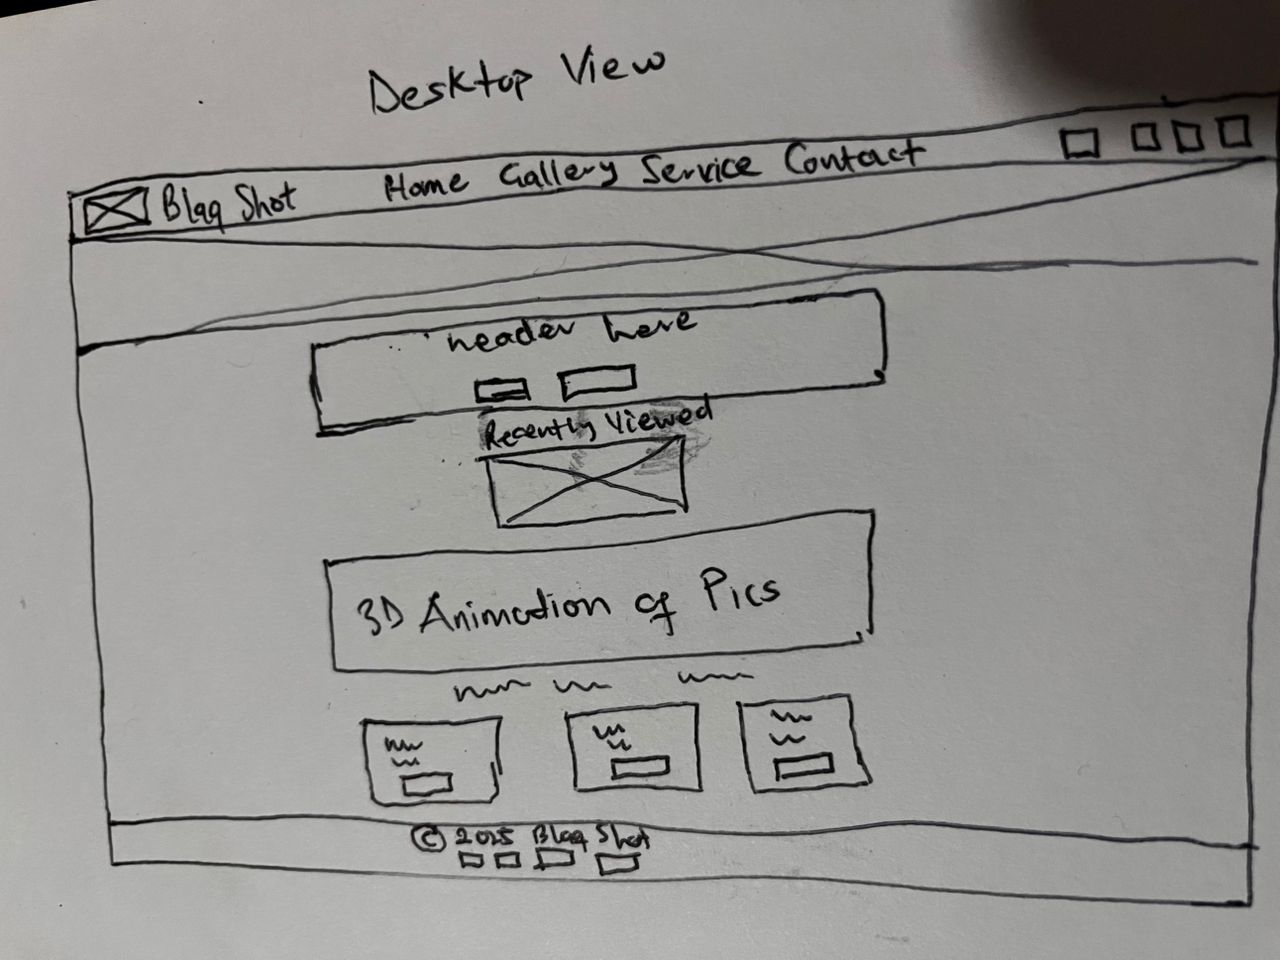 Desktop View
Blaq Shot Home Gallery Service Contact
header here
Recently Viewed
3D Animation of Pics
© 2025 Blaq Shot